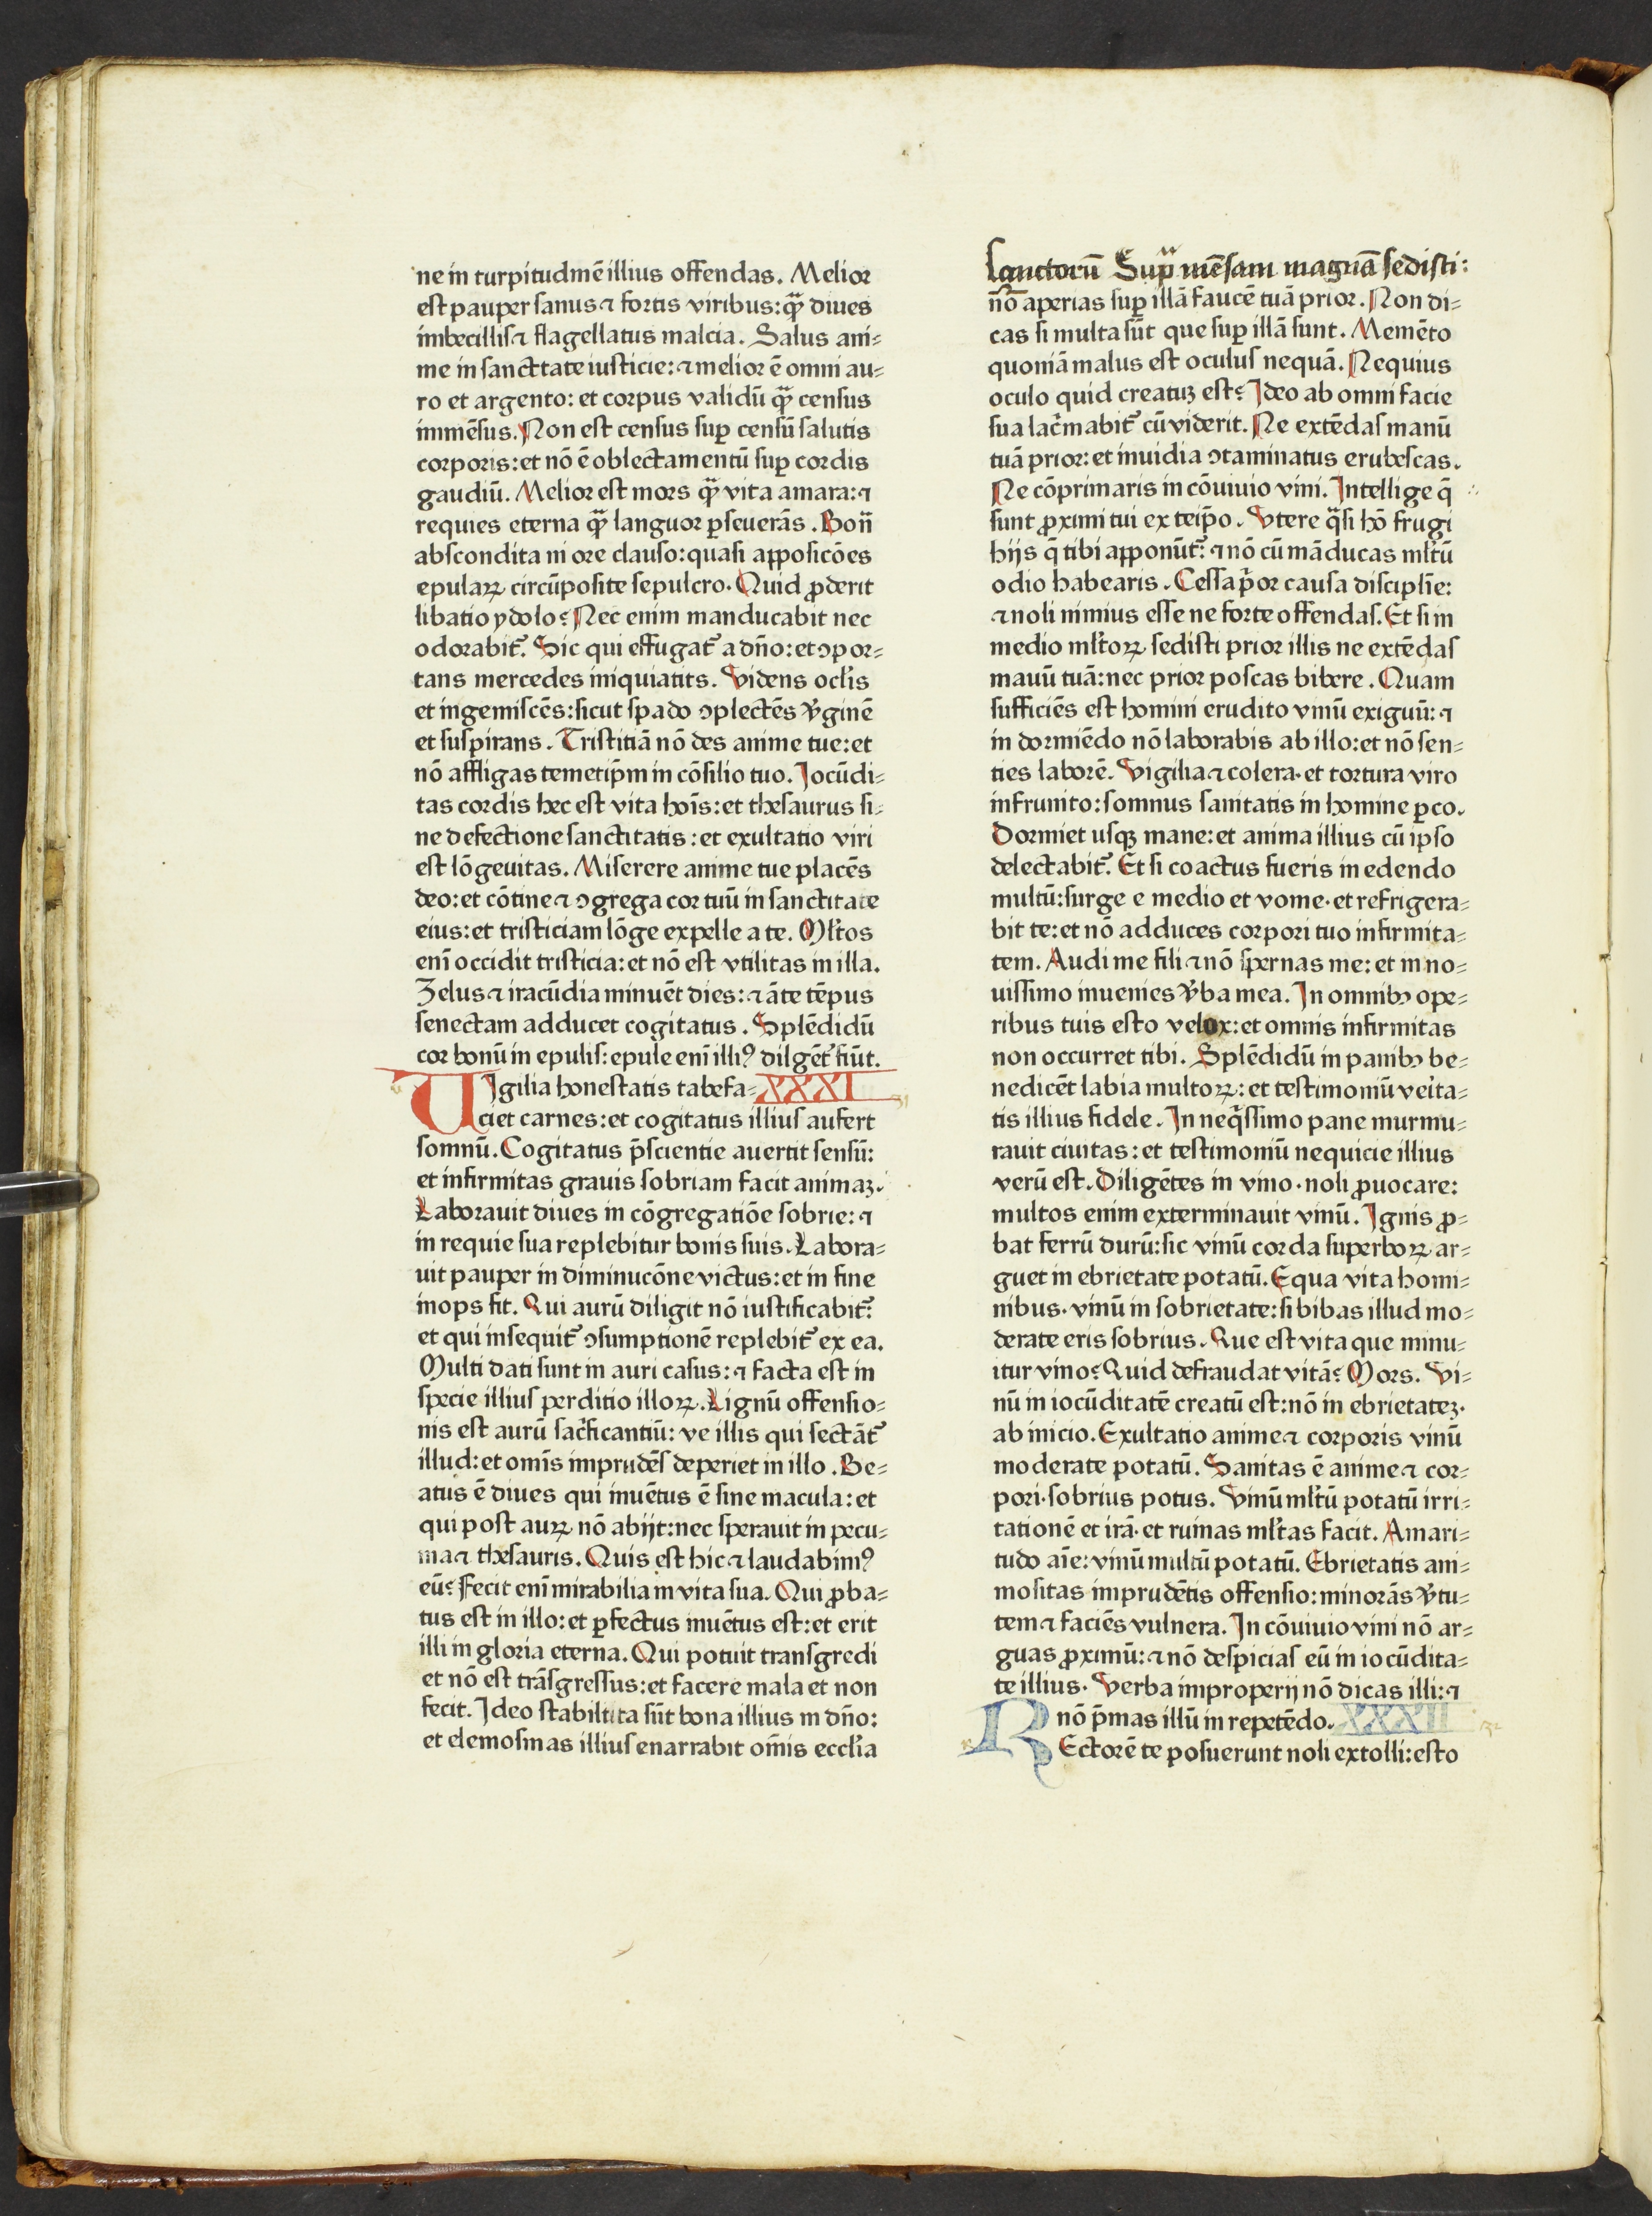 ne in turpitudinē illius offendas. Melior
est pauper sanus ⁊ fortis viribus: qͣꝫ diues
imbecillis ⁊ flagellatus malcia. Salus ani⸗
me in sancttate iusticie: ⁊ melior ē omni au⸗
ro et argento: et corpus validū qͣꝫ census
immēsus. Non est census suꝑ censū salutis
corporis: et nō ē oblectamentū suꝑ cordis
gaudiū. Melior est mors qͣꝫ vita amara: ⁊
requies eterna qͣꝫ languor ꝑseuerās. Bon̄
abscondita ni ore clauso: quasi apposicōes
epulaꝝ circūposite sepulcro. Quid ꝓderit
libatio ydolo? Nec enim manducabit nec
odorabit᷑. Sic qui effugat᷑ a dn̄o: et ꝯpor⸗
tans mercedes iniquiatits. Videns ocl̕is
et ingemiscēs: sicut spado ꝯplectēs v̕ginē
et suspirans. Tristitiā nō des anime tue: et
nō affligas temetip̄m in cōsilio tuo. Jocūdi⸗
tas cordis hec est vita hoīs: et thesaurus si⸗
ne defectione sanctitatis: et exultatio viri
est lōgeuitas. Miserere anime tue placēs
deo: et cōtine ⁊ ꝯgrega cor tuū in sanctitate
eius: et tristiciam lōge expelle a te. Ml̕tos
enī occidit tristicia: et nō est vtilitas in illa.
Zelus ⁊ iracūdia minuēt dies: ⁊ āte tēpus
senectam adducet cogitatus. Splēdidū
cor bonū in epulis: epule enī illiꝰ dilgēt᷑ fiūt.
Vigilia honestatis tabefa⸗ XXXI 31
ciet carnes: et cogitatus illius aufert
somnū. Cogitatus p̄scientie auertit sensū:
et infirmitas grauis sobriam facit animaꝫ.
Laborauit diues in cōgregatiōe sobrie: ⁊
in requie sua replebitur bonis suis. Labora⸗
uit pauper in diminucōne victus: et in fine
inops fit. Qui aurū diligit nō iustificabit᷑:
et qui insequit᷑ ꝯsumptionē replebit᷑ ex ea.
Multi dati sunt in auri casus: ⁊ facta est in
specie illius perditio illoꝝ. Lignū offensio⸗
nis est aurū sac̕ficantiū: ve illis qui sectāt᷑
illud: et omīs imprudēs deperiet in illo. Be⸗
atus ē diues qui inuētus ē sine macula: et
qui post auꝝ nō abijt: nec sperauit in pecu⸗
nia ⁊ thesauris. Quis est hic ⁊ laudabimꝰ
eū? Fecit enī mirabilia in vita sua. Qui ꝓba⸗
tus est in illo: et ꝑfectus inuētus est: et erit
illi in gloria eterna. Qui potuit transgredi
et nō est trāsgressus: et facere mala et non
fecit. Jdeo stabiltita sūt bona illius in dn̄o:
et elemosinas illius enarrabit om̄is eccl̕ia
sanctorū Supͣ mēsam magnā sedisti:
nō aperias suꝑ illā faucē tuā prior. Non di⸗
cas si multa sūt que suꝑ illā sunt. Memēto
quoniā malus est oculus nequā. Nequius
oculo quid creatuꝫ est? Jdeo ab omni facie
sua lac̕mabit᷑ cū viderit. Ne extēdas manū
tuā prior: et inuidia ꝯtaminatus erubescas.
Ne cōprimaris in cōuiuio vini. Intellige q̄
sunt ꝓximi tui ex teip̄o. Vtere qͣsi hō frugi
hijs q̄ tibi apponūt᷑: ⁊ nō cū māducas ml̕tū
odio habearis. Cessa pͥor causa disciplīe:
⁊ noli nimius esse ne forte offendas. Et si in
medio ml̕toꝝ sedisti prior illis ne extēdas
mauū tuā: nec prior poscas bibere. Quam
sufficiēs est homini erudito vinū exiguū: ⁊
in dormiēdo nō laborabis ab illo: et nō sen⸗
ties laborē. Vigilia ⁊ colera· et tortura viro
infrunito: somnus sanitatis in homine ꝑco.
Dormiet usqꝫ mane: et anima illius cū ipso
delectabit᷑. Et si coactus fueris in edendo
multū: surge e medio et vome· et refrigera⸗
bit te: et nō adduces corpori tuo infirmita⸗
tem. Audi me fili ⁊ nō spernas me: et in no⸗
uissimo inuenies v̕ba mea. In omnibꝫ ope⸗
ribus tuis esto velox: et omnis infirmitas
non occurret tibi. Splēdidū in panibꝫ be⸗
nedicēt labia multoꝝ: et testimoniū veita⸗
tis illius fidele. In neqͥssimo pane murmu⸗
rauit ciuitas: et testimoniū nequicie illius
verū est. Diligētes in vino· noli ꝓuocare:
multos enim exterminauit vinū. Ignis ꝓ⸗
bat ferrū durū: sic vinū corda superboꝝ ar⸗
guet in ebrietate potatū. Equa vita homi⸗
nibus· vinū in sobrietate: si bibas illud mo⸗
derate eris sobrius. Que est vita que minu⸗
itur vino? Quid defraudat vitā? Mors. Vi⸗
nū in iocūditatē creatū est: nō in ebrietateꝫ·
ab inicio. Exultatio anime ⁊ corporis vinū
moderate potatū. Sanitas ē anime ⁊ cor⸗
pori· sobrius potus. Vinū ml̕tū potatū irri⸗
tationē et irā· et ruinas ml̕tas facit. Amari⸗
tudo aīe: vinū multū potatū. Ebrietatis ani⸗
mositas imprudētis offensio: minorās v̕tu⸗
tem ⁊ faciēs vulnera. In cōuiuio vini nō ar⸗
guas ꝓximū: ⁊ nō despicias eū in iocūdita⸗
te illius. Verba improperij nō dicas illi: ⁊
nō p̄mas illū in repetēdo. XXXII 32
REctorē te posuerunt noli extolli: esto